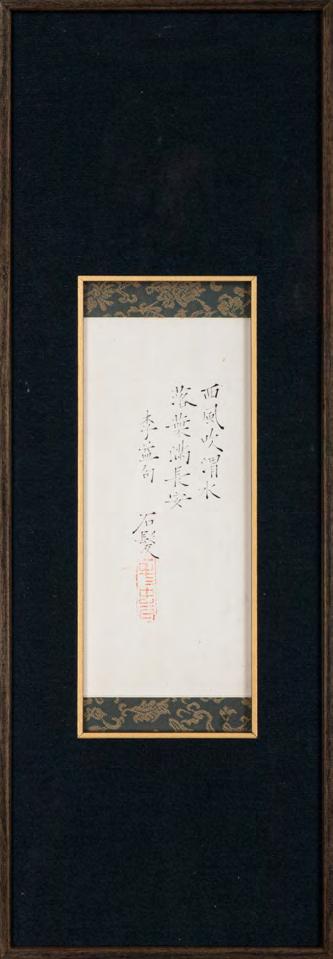 西風吹渭水
落葉滿長安
李益句
石髮